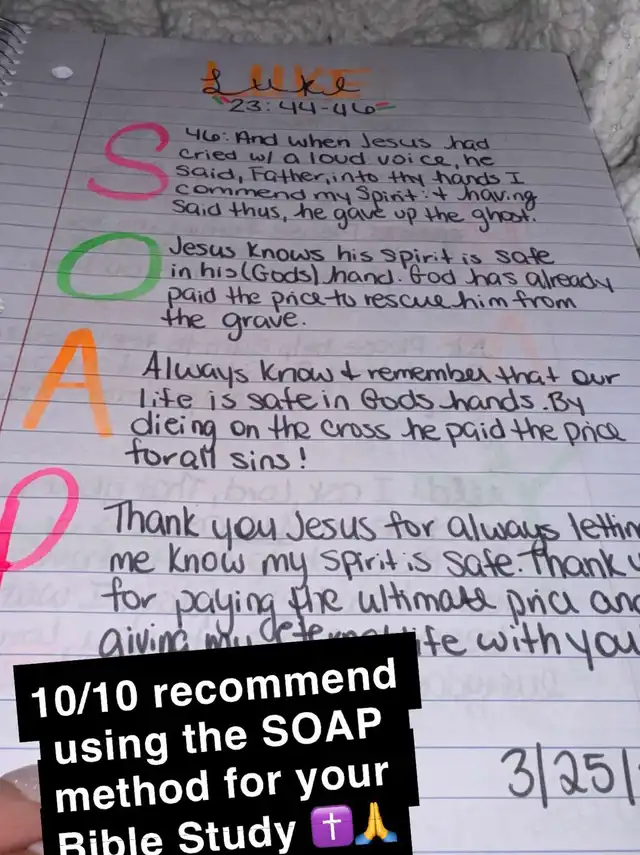 LUKE
Luke
23:44-46
S
46: And when Jesus had
cried w/ a loud voice, he
said, Father, into thy hands I
commend my Spirit: & having
Said thus, he gave up the ghost.
O
Jesus knows his spirit is safe
in his (Gods) hand. God has already
paid the price to rescue him from
the grave.
A
Always know & remember that our
life is safe in Gods hands. By
dieing on the cross he paid the price
for all sins!
P
Thank you Jesus for always lettin
me know my spirit is safe. Thank
for paying the ultimate price and
giving my eternal life with you
10/10 recommend
using the SOAP
method for your
Bible Study ✝️🙏
3/25/